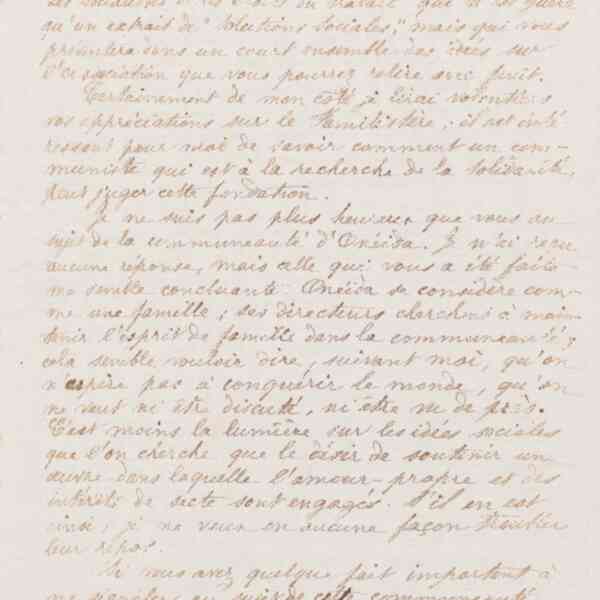 des solidarités et les droits du travail" que n'est guère
qu'un extrait de "Solutions sociales," mais qui vous
présentera dans un court ensemble des idées sur
l'association que vous pourrez relire avec fruit.
Certainement de mon côté, je lirai volontiers
vos appréciations sur le Familistère; il est inté-
ressant pour moi de savoir comment un com-
muniste qui est à la recherche de la solidarité,
peut juger cette fondation.
Je ne suis pas plus heureux que vous au
sujet de la communauté d'Onéida. Je n'ai reçu
aucune réponse, mais celle qui vous a été faite
me semble concluante. Onéida se considère com-
me une famille; ses directeurs cherchent à main-
tenir l'esprit de famille dans la communauté;
cela semble vouloir dire, suivant moi, qu'on
n'aspire pas à conquérir le monde, qu'on
ne veut ni être discuté, ni être vu de près.
C'est moins la lumière sur les idées sociales
que l'on cherche que le désir de soutenir un
œuvre dans laquelle l'amour-propre et des
intérêts de secte sont engagés. S'il en est
ainsi, je ne veux en aucune façon troubler
leur repos.
Si vous avez quelque fait important à
me signaler au sujet de cette communauté